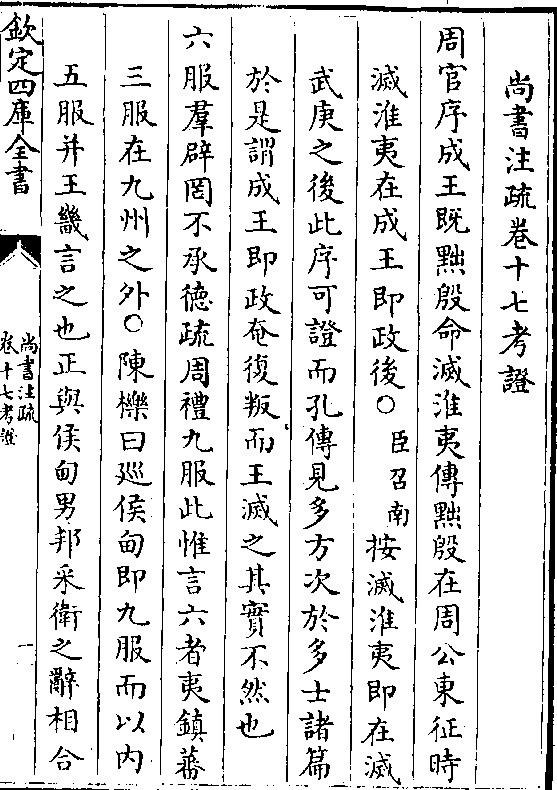 尚書注疏卷十七考證
周官序成王既黜殷命滅淮夷傳黜殷在周公東征時
滅淮夷在成王即政後○臣召南按滅淮夷即在滅
武庚之後此序可證而孔傳見多方次於多士諸篇
於是謂成王即政奄復叛而王滅之其實不然也
六服羣辟罔不承德疏周禮九服此惟言六者夷鎮蕃
三服在九州之外○陳櫟曰廵侯甸即九服而以内
五服并王畿言之也正與侯甸男邦采衛之辭相合
欽定四庫全書
尚書注疏
卷十七考證
一